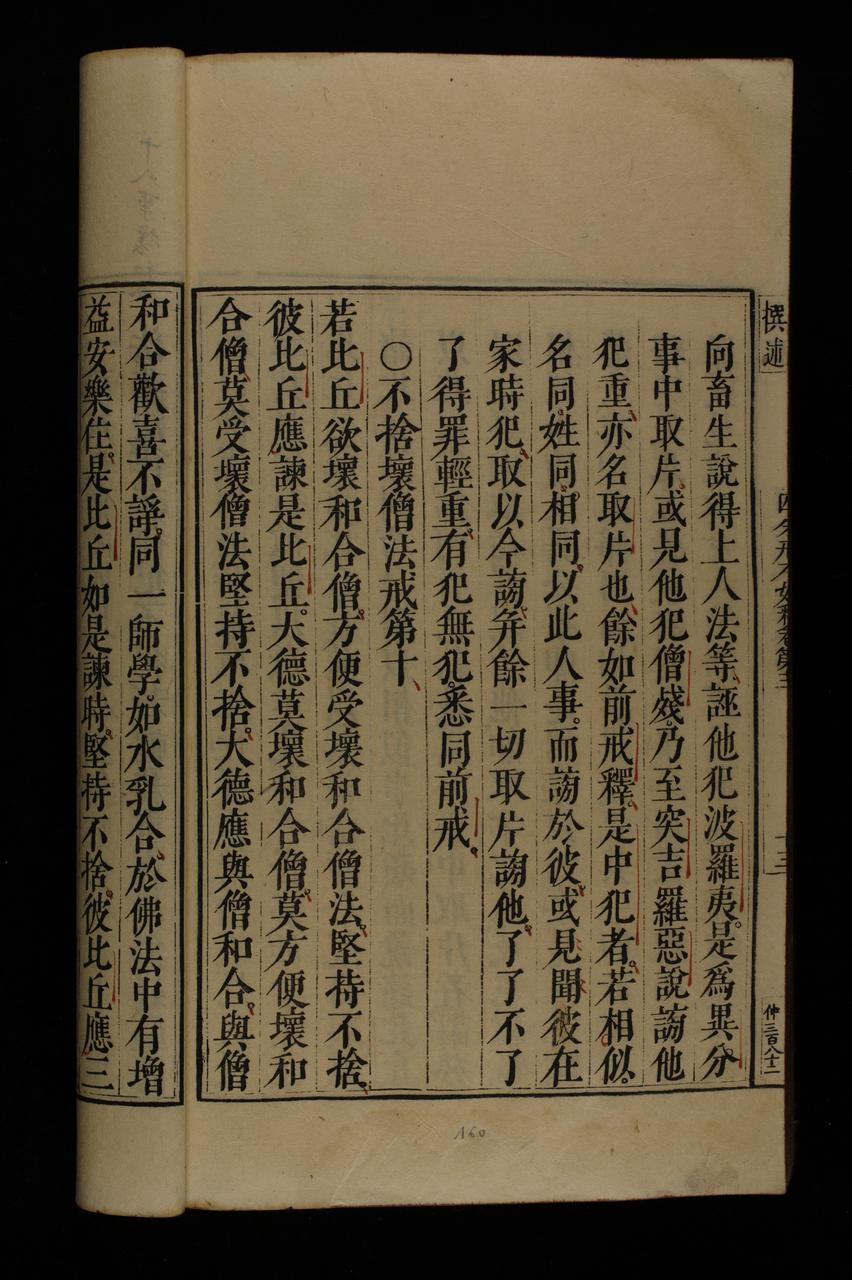 撰述
四分戒本如釋卷第三
十三
仲三百八十二
向畜生說得上人法等、誣他犯波羅夷。是爲異分
事中取片。或見他犯僧殘。乃至突吉羅惡說謗他
犯重、亦名取片也、餘如前戒釋、是中犯者。若相似。
名同、姓同、相同。以此人事。而謗於彼。或見聞彼在
家時犯、取以今謗、并餘一切取片謗他。了了不了
了得罪輕重。有犯無犯。悉同前戒。
〇不捨壞僧法戒第十、
若比丘欲壞和合僧。方便受壞和合僧法。堅持不捨。
彼比丘應諫是比丘。大德莫壞和合僧。莫方便壞和
合僧。莫受壞僧法堅持不捨。大德應與僧和合。與僧
和合歡喜不諍。同一師學。如水乳合。於佛法中有增
益安樂住。是比丘如是諫時。堅持不捨。彼比丘應三
160